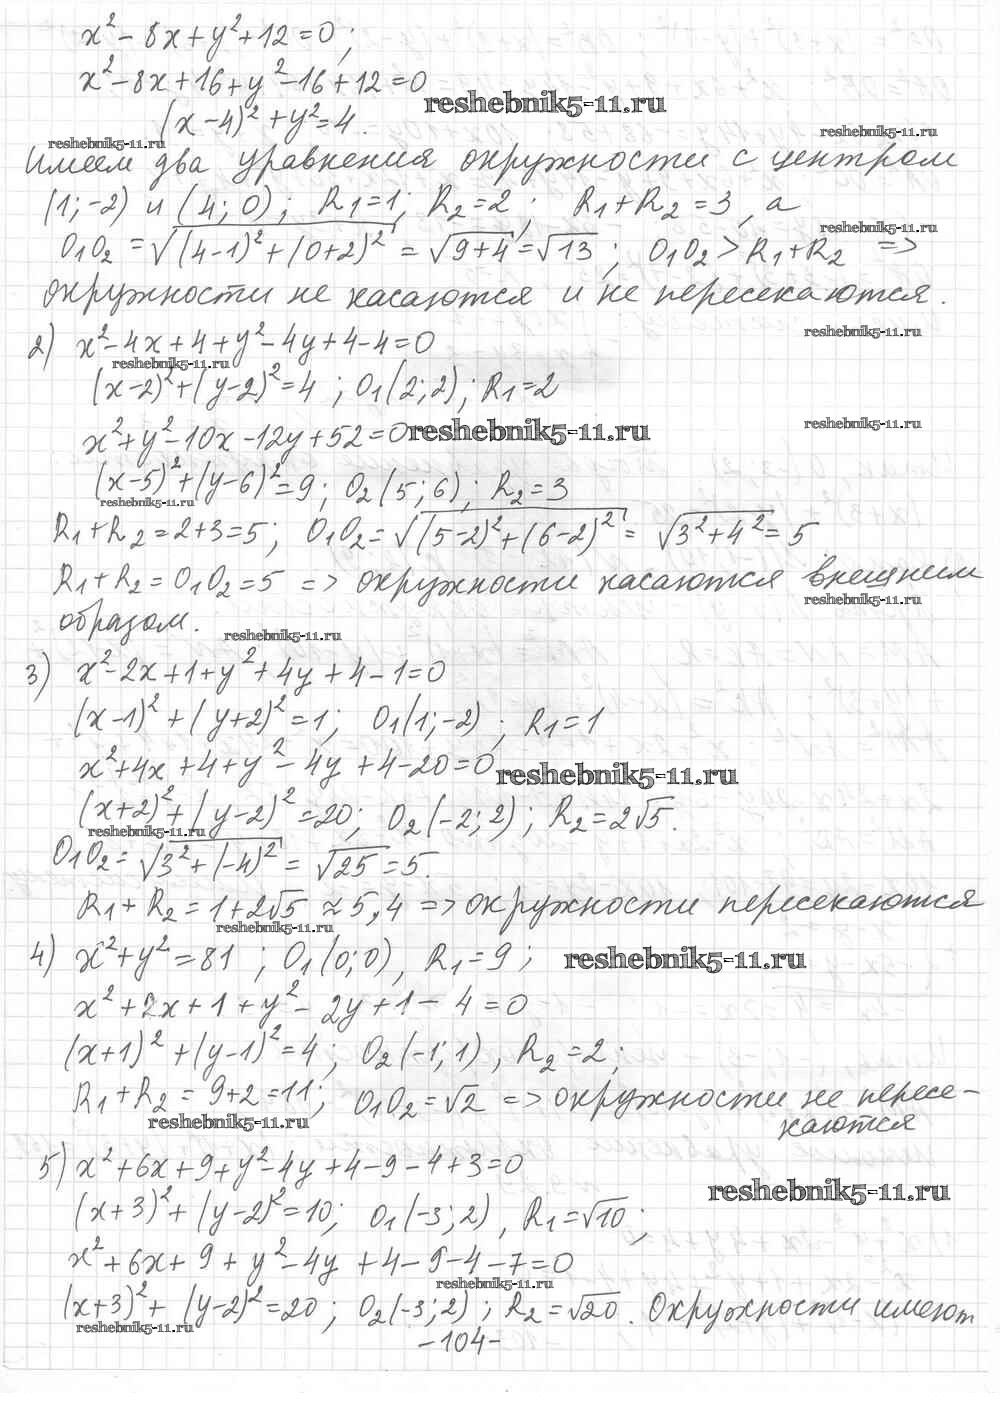 x² - 8x + y² + 12 = 0;
x² - 8x + 16 + y² - 16 + 12 = 0
reshebnik5-11.ru
(x-4)² + y² = 4.
reshebnik5-11.ru
reshebnik5-11.ru
Имеем два уравнения окружности с центром
(1;-2) и (4; 0); R₁=1; R₂=2; R₁+R₂=3, а
reshebnik5-11.ru
O₁O₂ = √((4-1)²+(0+2)²) = √(9+4) = √13; O₁O₂ > R₁+R₂ =>
окружности не касаются и не пересекаются.
reshebnik5-11.ru
2) x² - 4x + 4 + y² - 4y + 4 - 4 = 0
reshebnik5-11.ru
(x-2)² + (y-2)² = 4; O₁(2;2); R₁=2
reshebnik5-11.ru
x² + y² - 10x - 12y + 52 = 0
reshebnik5-11.ru
(x-5)² + (y-6)² = 9; O₂(5;6); R₂=3
reshebnik5-11.ru
R₁+R₂ = 2+3 = 5; O₁O₂ = √((5-2)²+(6-2)²) = √(3²+4²) = 5
R₁+R₂ = O₁O₂ = 5 => окружности касаются внешним
reshebnik5-11.ru
образом.
reshebnik5-11.ru
3) x² - 2x + 1 + y² + 4y + 4 - 1 = 0
(x-1)² + (y+2)² = 1; O₁(1;-2); R₁=1
x² + 4x + 4 + y² - 4y + 4 - 20 = 0
reshebnik5-11.ru
(x+2)² + (y-2)² = 20; O₂(-2;2); R₂=2√5.
reshebnik5-11.ru
O₁O₂ = √(3²+(-4)²) = √25 = 5.
R₁+R₂ = 1+2√5 ≈ 5,4 => окружности пересекаются
reshebnik5-11.ru
4) x² + y² = 81; O₁(0;0), R₁=9;
reshebnik5-11.ru
x² + 2x + 1 + y² - 2y + 1 - 4 = 0
(x+1)² + (y-1)² = 4; O₂(-1;1), R₂=2;
R₁+R₂ = 9+2 = 11; O₁O₂ = √2 => окружности не пересе-
reshebnik5-11.ru
каются
5) x² + 6x + 9 + y² - 4y + 4 - 9 - 4 + 3 = 0
reshebnik5-11.ru
(x+3)² + (y-2)² = 10; O₁(-3;2), R₁=√10;
x² + 6x + 9 + y² - 4y + 4 - 9 - 4 - 7 = 0
reshebnik5-11.ru
(x+3)² + (y-2)² = 20; O₂(-3;2); R₂=√20. Окружности имеют
reshebnik5-11.ru
-104-